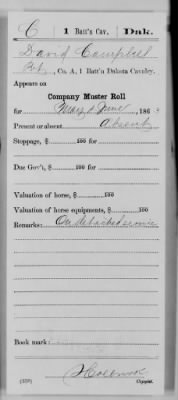 C 1 Batt'n Cav. Dak.
David Campbell
Pvt, Co. A, 1 Batt'n Dakota Cavalry.
Appears on
Company Muster Roll
for May & June, 186
Present or absent Absent
Stoppage, $ 100 for
Due Gov't, $ 100 for
Valuation of horse, $ 100
Valuation of horse equipments, $ 100
Remarks: On detached service
Book mark:
Holbrook
(359) Copyist.